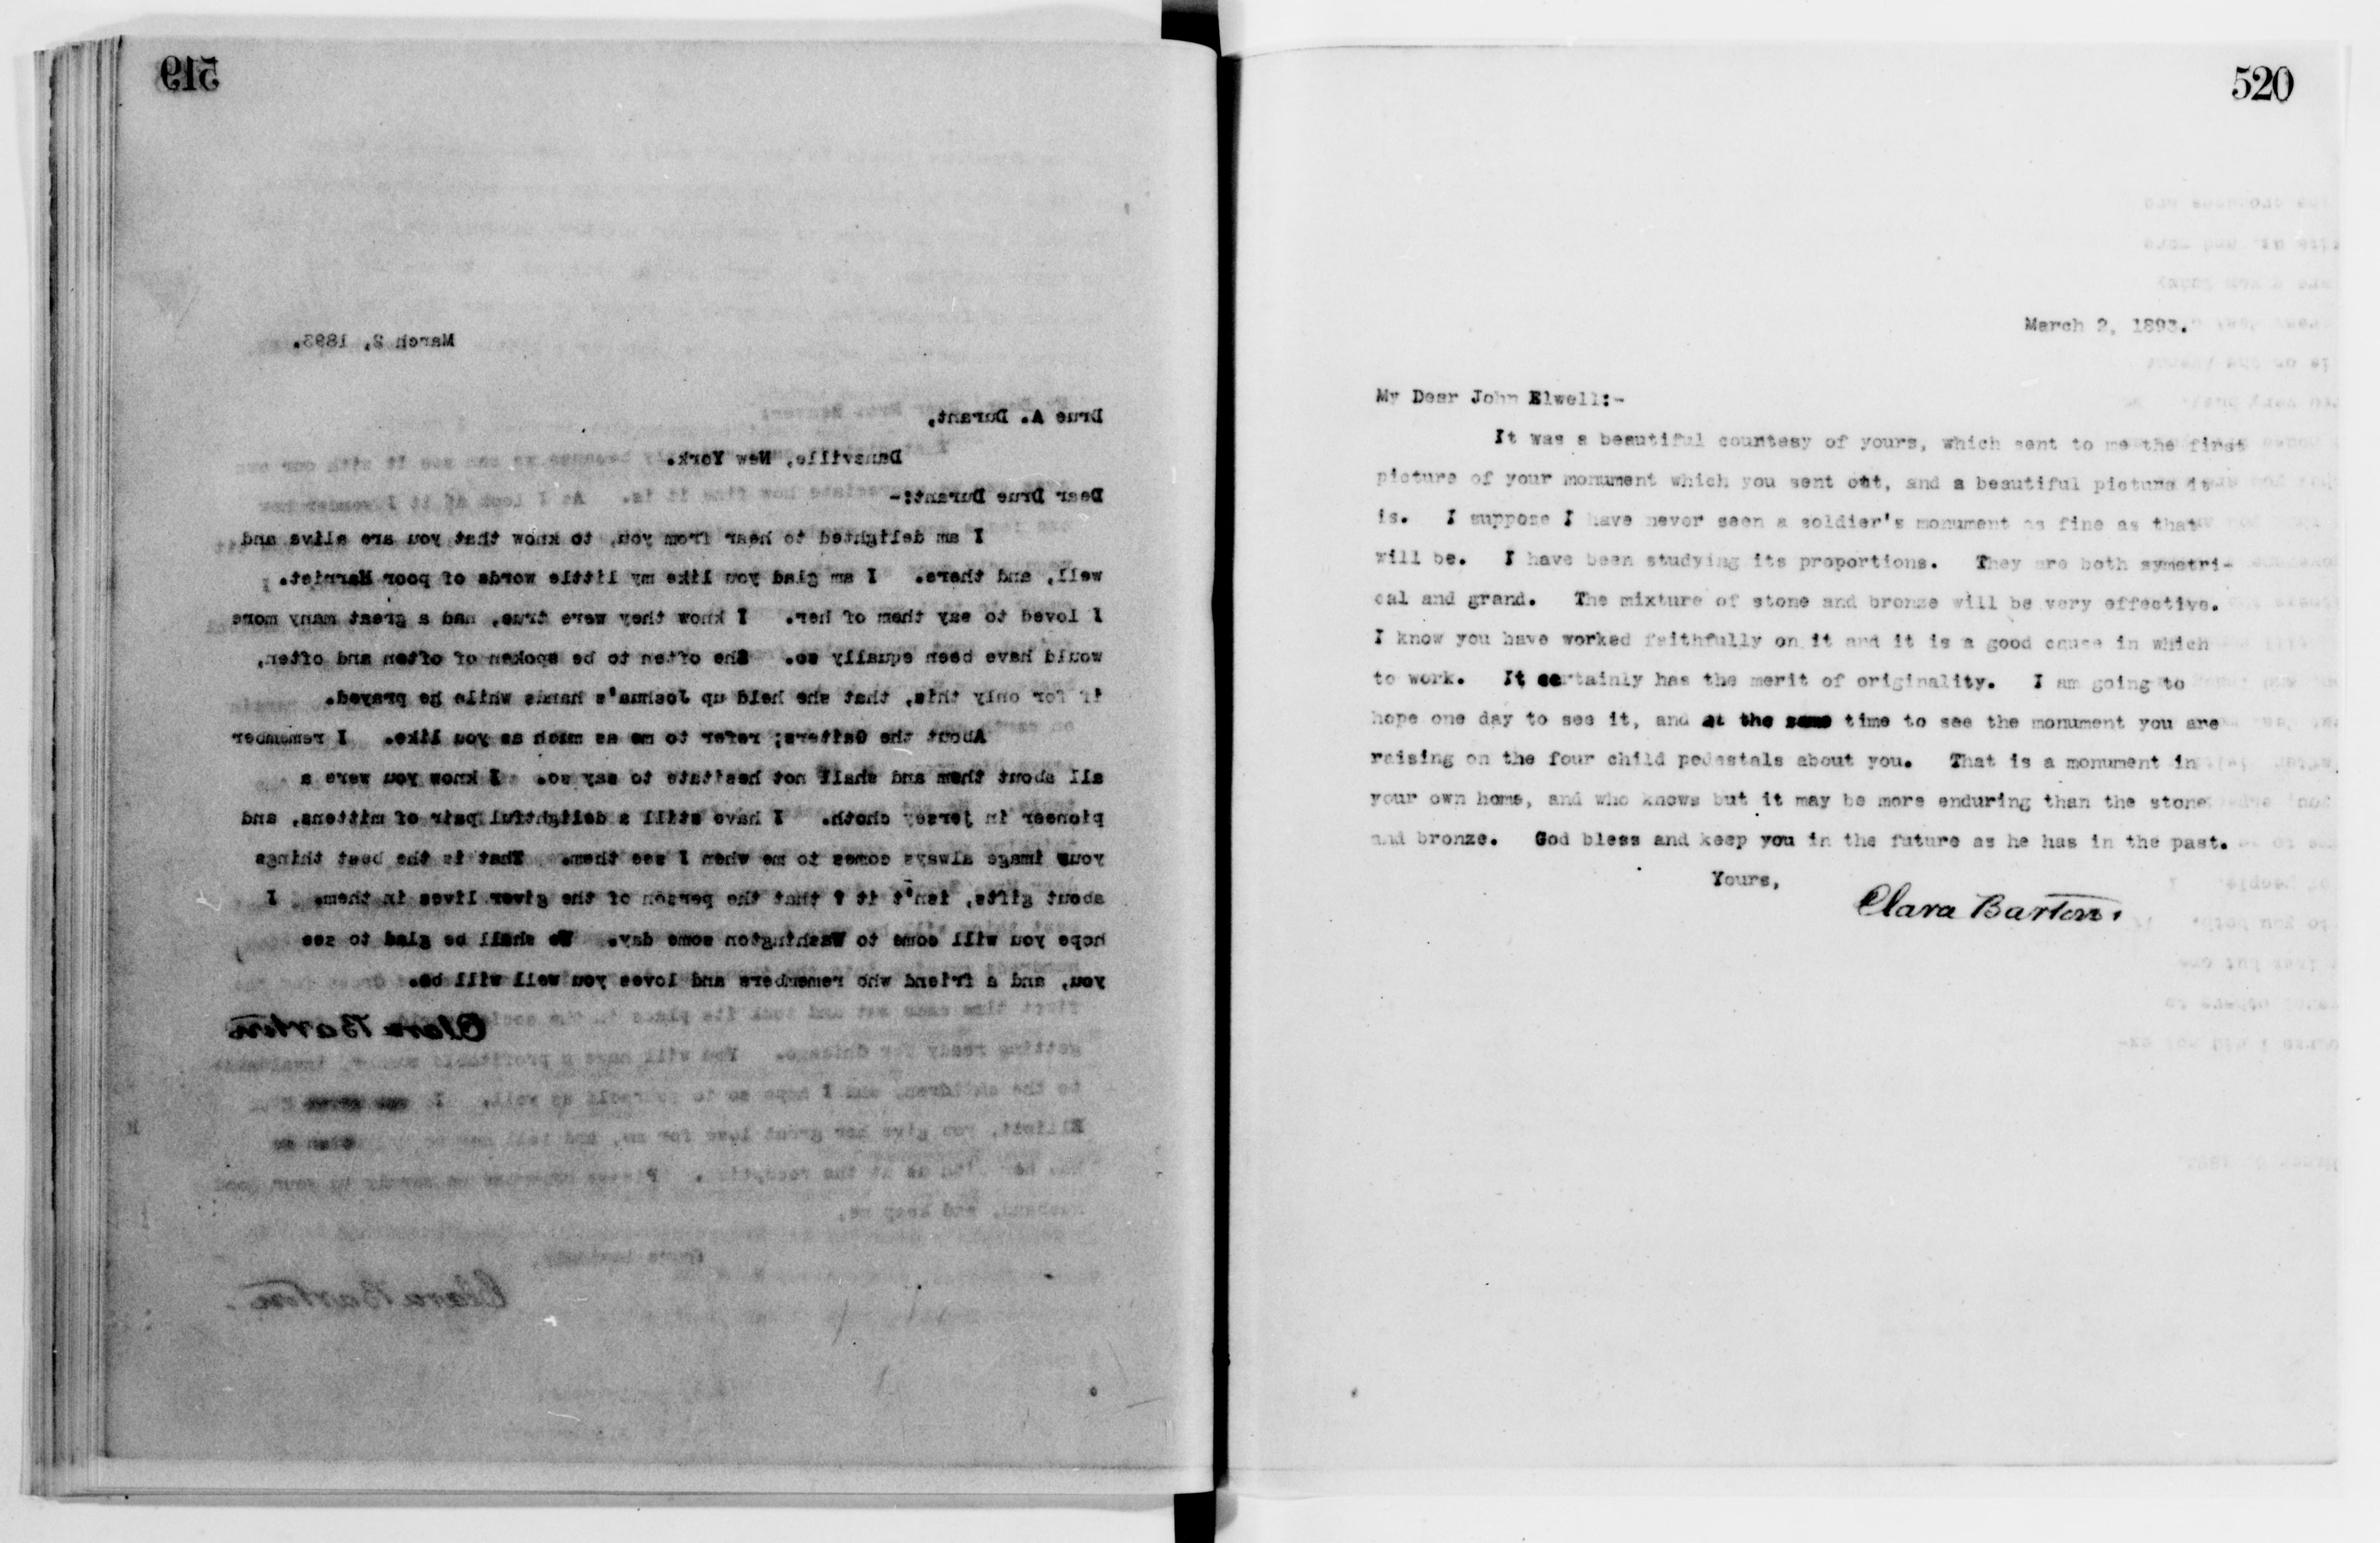 519
March 2, 1893.
Drue A. Durant,
Dansville, New York.
Dear Drue Durant:-
I am delighted to hear from you, to know that you are alive and
well, and there. I am glad you like my little words of poor Harriet.
I loved to say them of her. I know they were true, had a great many more
would have been equally so. She often to be spoken of often and often,
if for only this, that she held up Joshua's hands while he prayed.
About the Gaiters; refer to me as much as you like. I remember
all about them and shall not hesitate to say so. I know you were a
pioneer in jersey cloth. I have still a delightful pair of mittens, and
your image always comes to me when I see them. That is the best things
about gifts, isn't it ? that the person of the giver lives in them. I
hope you will come to Washington some day. We shall be glad to see
you, and a friend who remembers and loves you well will be.
Clara Barton
getting ready for Chicago. You will have a profitable
to the children, and I hope so to yourself as well. I
Elliott, you give her great love for me, and tell
at the reception.
husband, and keep me,
Clara Barton.
520
March 2, 1893.
My Dear John Elwell:-
It was a beautiful countesy of yours, which sent to me the first
picture of your monument which you sent out, and a beautiful picture it
is. I suppose I have never seen a soldier's monument as fine as that
will be. I have been studying its proportions. They are both symetri-
cal and grand. The mixture of stone and bronze will be very effective.
I know you have worked faithfully on it and it is a good cause in which
to work. It certainly has the merit of originality. I am going to
hope one day to see it, and at the same time to see the monument you are
raising on the four child pedestals about you. That is a monument in
your own home, and who knows but it may be more enduring than the stone
and bronze. God bless and keep you in the future as he has in the past.
Yours,
Clara Barton.